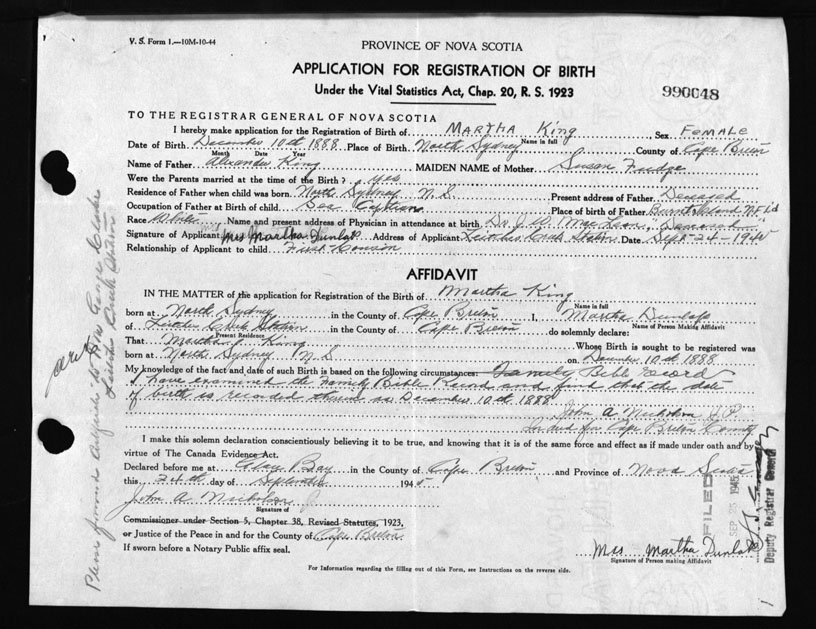 V. S. Form 1.—10M-10-44
PROVINCE OF NOVA SCOTIA
APPLICATION FOR REGISTRATION OF BIRTH
Under the Vital Statistics Act, Chap. 20, R. S. 1923
990048
TO THE REGISTRAR GENERAL OF NOVA SCOTIA
I hereby make application for the Registration of Birth of MARTHA King Sex FEMALE
Name in full
Date of Birth December 10th 1888 Place of Birth North Sydney County of Cape Breton
Month Date Year
Name of Father Alexander King MAIDEN NAME of Mother Susan Fudge
Were the Parents married at the time of the Birth? yes
Residence of Father when child was born North Sydney N.S Present address of Father Deceased
Occupation of Father at Birth of child Sea Captain Place of birth of Father Burnt Island N.F.L'd
Race Name and present address of Physician in attendance at birth Dr. J. W. MacLean, Deceased
Signature of Applicant Mrs Martha Dunlap Address of Applicant Leitches Creek Station Date Sept-24-1945
Relationship of Applicant to child First Cousin
AFFIDAVIT
IN THE MATTER of the application for Registration of the Birth of Martha King
Name in full
born at North Sydney in the County of Cape Breton I, Martha Dunlap
Name of Person Making Affidavit
of Leitches Creek Station in the County of Cape Breton do solemnly declare:
Present Residence
That Martha King Whose Birth is sought to be registered was
born at North Sydney N.S on December 10th 1888
My knowledge of the fact and date of such Birth is based on the following circumstances: Family Bible record
I have examined the Family Bible Record and find that the date
of birth is recorded therein as December 10th 1888
John A Nicholson J.P.
In and for Cape Breton County
I make this solemn declaration conscientiously believing it to be true, and knowing that it is of the same force and effect as if made under oath and by
virtue of The Canada Evidence Act.
Declared before me at Glace Bay in the County of Cape Breton and Province of Nova Scotia
this 24th day of September 1945
John A Nicholson
Signature of
Commissioner under Section 5, Chapter 38, Revised Statutes, 1923,
or Justice of the Peace in and for the County of Cape Breton
If sworn before a Notary Public affix seal.
Mrs. Martha Dunlap
Signature of Person making Affidavit
For Information regarding the filling out of this Form, see Instructions on the reverse side.
FILED
SEP 25 1945
Deputy Registrar General
Please forward to Mrs George
Leitches Creek Station